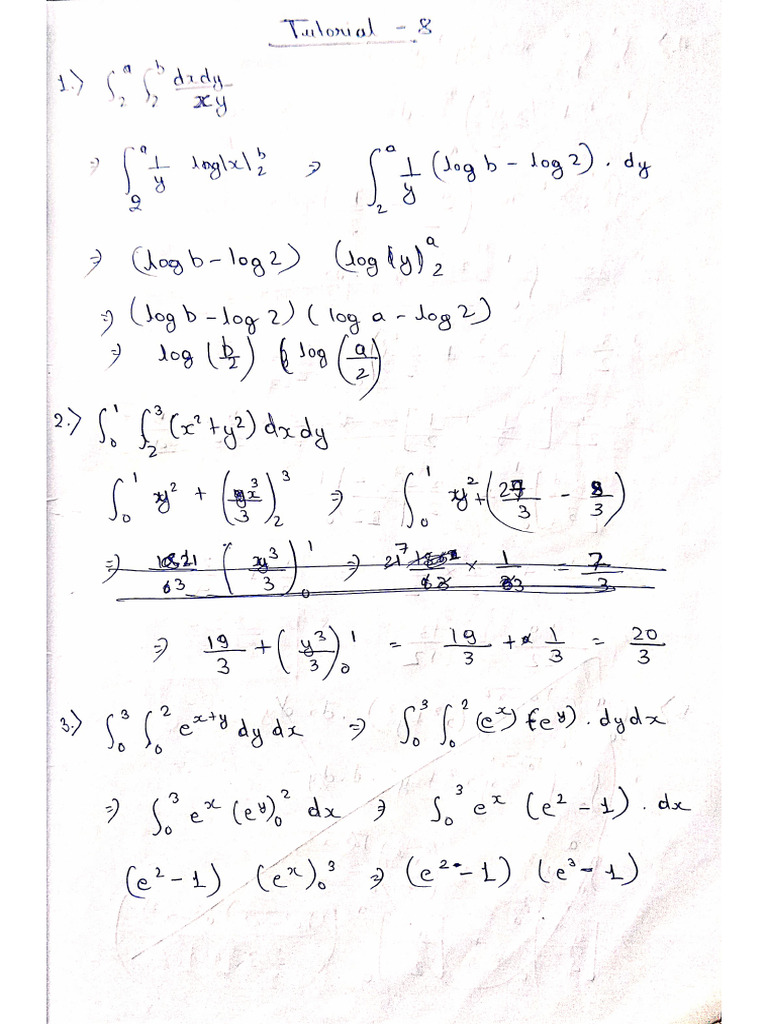 Tutorial - 8
1.) ∫₂ᵃ ∫₂ᵇ dxdy/xy
⇒ ∫₂ᵃ 1/y log|x|₂ᵇ ⇒ ∫₂ᵃ 1/y (log b - log 2) . dy
⇒ (log b - log 2) (log |y|)₂ᵃ
⇒ (log b - log 2) ( log a - log 2)
⇒ log (b/2) log (a/2)
2.) ∫₀¹ ∫₂³ (x² + y²) dx dy
∫₀¹ xy² + (x³/3)₂³ ⇒ ∫₀¹ xy² + (27/3 - 8/3)
⇒ 19/3 + (y³/3)₀¹ = 19/3 + 1/3 = 20/3
3.) ∫₀³ ∫₀² eˣ⁺ʸ dy dx ⇒ ∫₀³ ∫₀² (eˣ) (eʸ) . dy dx
⇒ ∫₀³ eˣ (eʸ)₀² dx ⇒ ∫₀³ eˣ (e² - 1) . dx
(e² - 1) (eˣ)₀³ ⇒ (e² - 1) (e³ - 1)